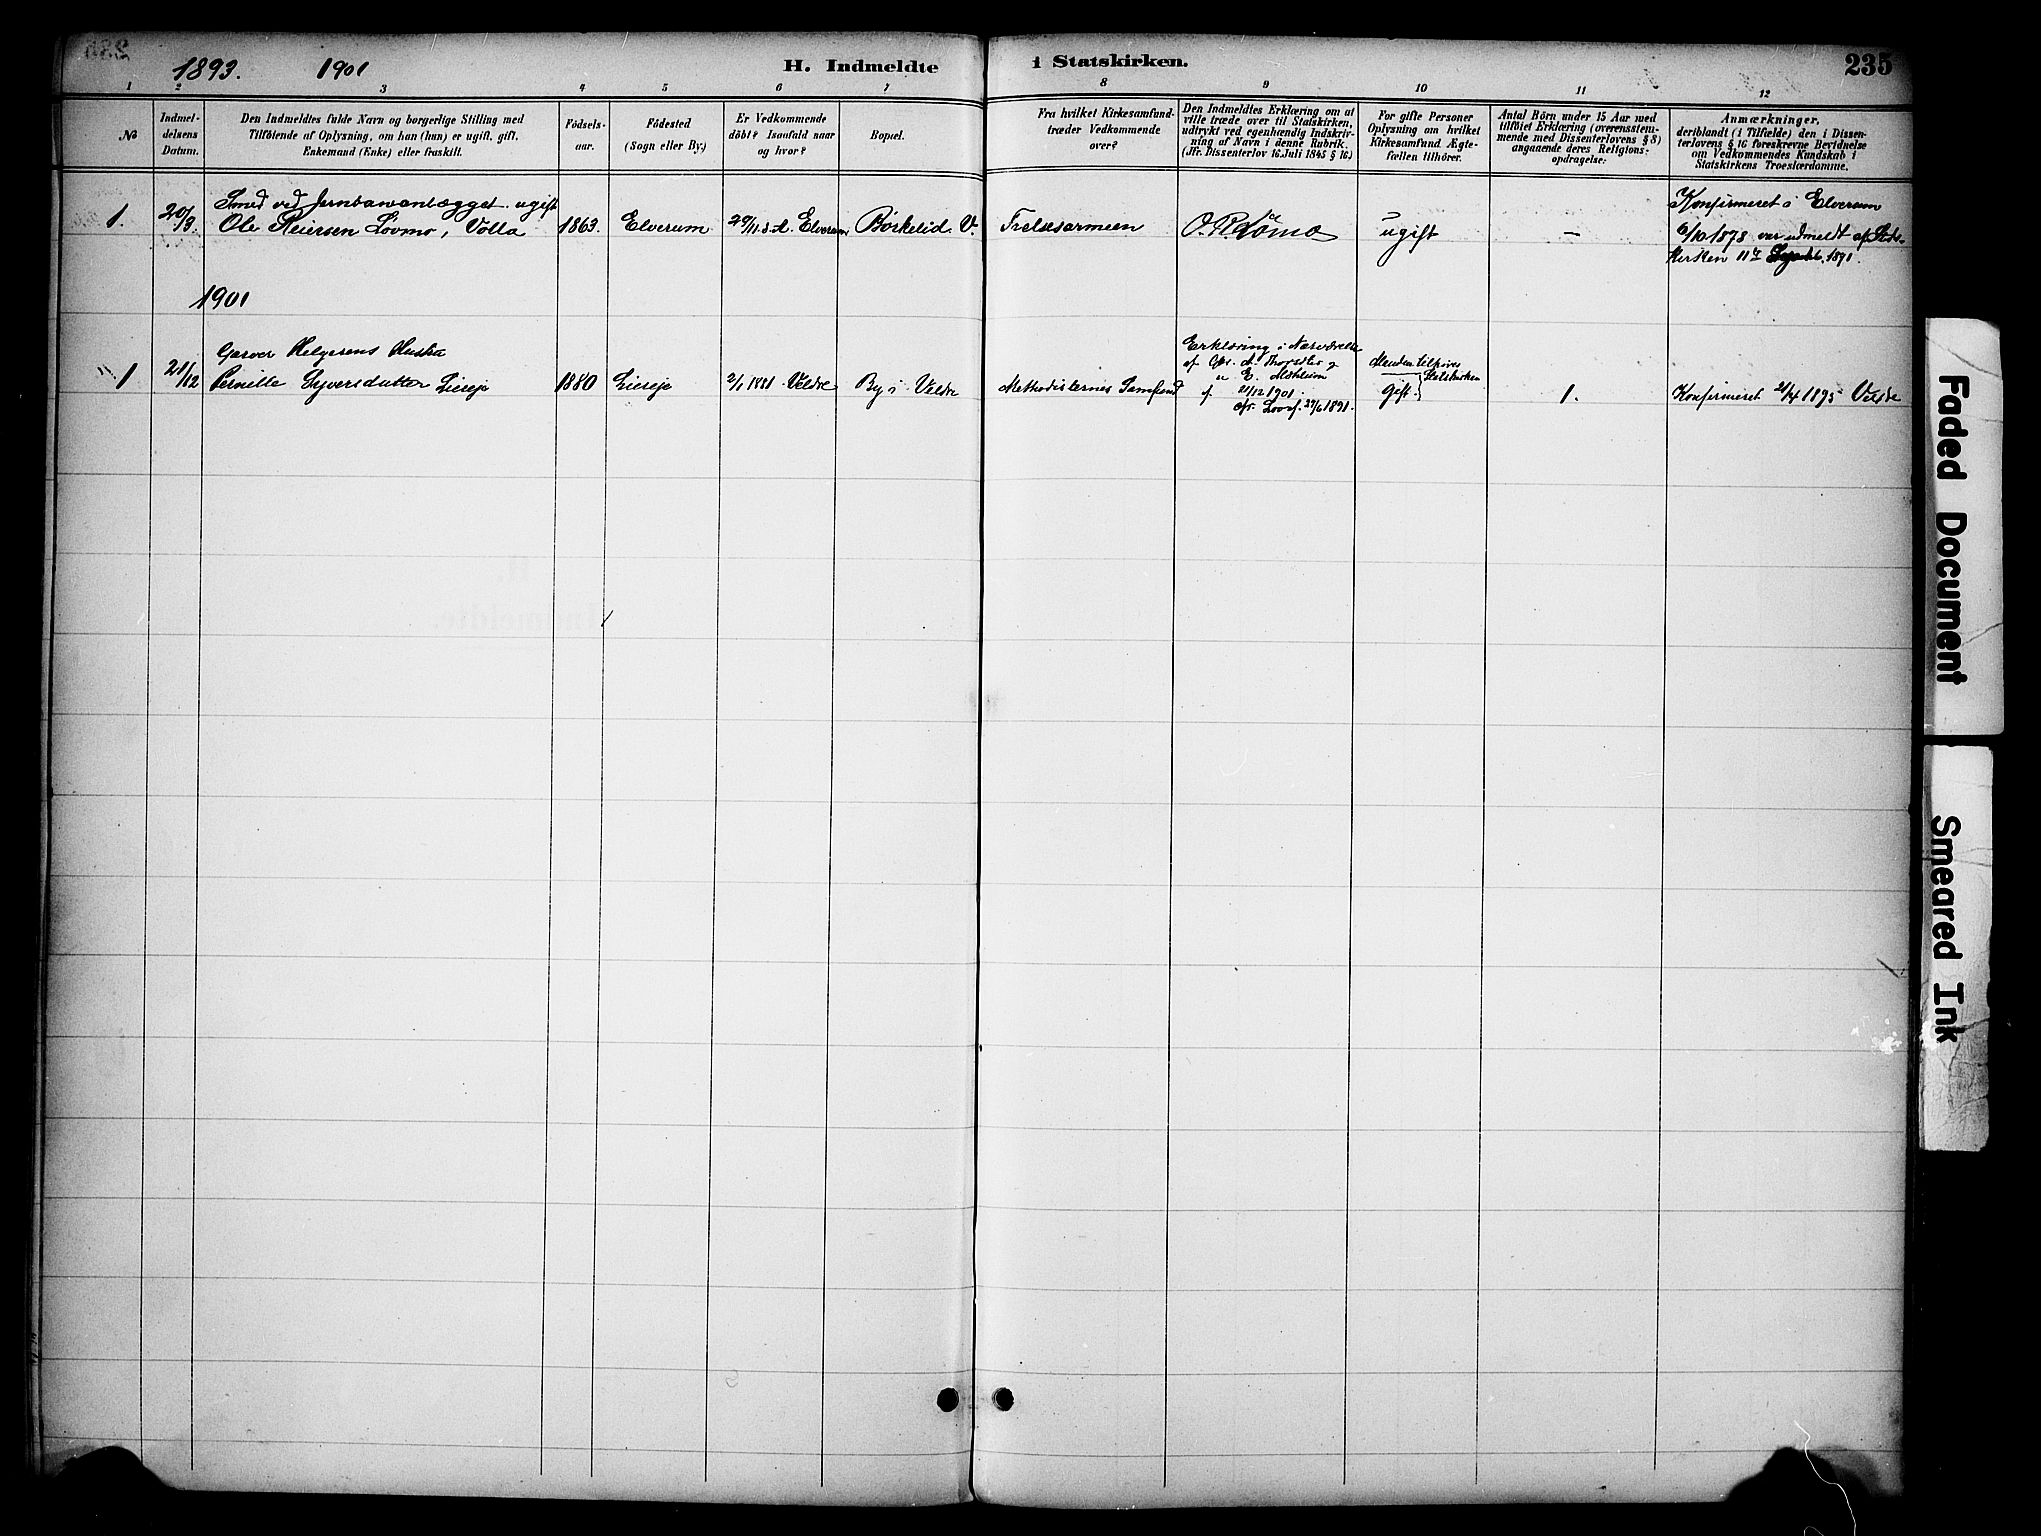 1893. 1901
H. Indmeldte i Statskirken.
235
1 2 3 4 5 6 7 8 9 10 11 12
No
Indmel-
delsens
Datum.
Den Indmeldtes fulde Navn og borgerlige Stilling med
Tilföiende af Oplysning, om han (hun) er ugift, gift,
Enkemand (Enke) eller fraskilt.
Födsels-
aar.
Födested
(Sogn eller By.)
Er Vedkommende
döbt? Isaafald naar
og hvor?
Bopæl.
Fra hvilket Kirkesamfund
træder Vedkommende
over?
Den Indmeldtes Erklæring om at
ville træde over til Statskirken,
udtrykt ved egenhændig Indskriv-
ning af Navn i denne Rubrik.
(Jfr. Dissenterlov 16 Juli 1845 § 16.)
For gifte Personer
Oplysning om hvilket
Kirkesamfund Ægte-
fællen tilhörer.
Antal Börn under 15 Aar med
tilföiet Erklæring (overensstem-
mende med Dissenterlovens § 8)
angaaende deres Religions-
opdragelse:
Anmærkninger,
deriblandt (i Tilfælde) den i Dissen-
terlovens § 16 foreskrevne Bevidnelse
om Vedkommendes Kundskab i
Statskirkens Troeslærdomme.
1.
20/9.
Smed ved Jernbaneanlægget. ugift
Ole Reiersen Lövmo, Volla
1863.
Elverum
29/11 s. A. Elverum
Börkelid. V.
Frelsesarmeen
ugift
—
Konfirmeret i Elverum
6/10 1878 var udmeldt af Stats-
kirken 11te 1891.
1901
1
21/12
Garver Helgesens Hustru
Pernille Syversdatter Lieeje
1880
Lieeje
2/1 1881. Veldre
By i Veldre
Methodisternes Samfund
Erklæring i Nærværelse
af
21/12 1901.
cfr. Lov af 27/6 1891.
Manden tilhörer
Statskirken
Gift.
1.
Konfirmeret 21/4 1895 Veldre
Faded Document
Smeared Ink